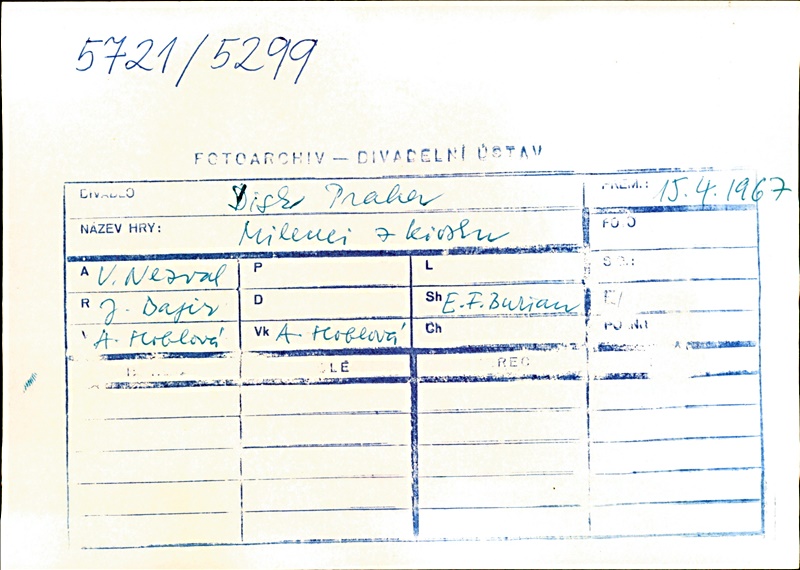 5721/5299
FOTOARCHIV — DIVADELNÍ ÚSTAV
DIVADLO Disk Praha PREM.: 15.4.1967
NÁZEV HRY: Milenci z kiosku FOTO
A V. Nezval P L
R D Sh E. F. Burian
A. Hoblová Vk A. Hoblová Ch